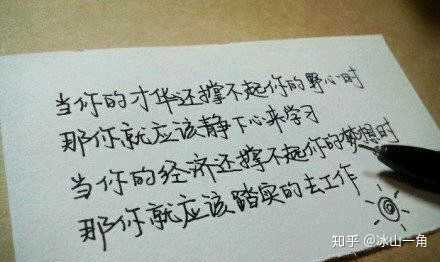 当你的才华还撑不起你的野心时
那你就应该静下心来学习
当你的经济还撑不起你的梦想时
那你就应该踏实的去工作
知乎 @冰山一角